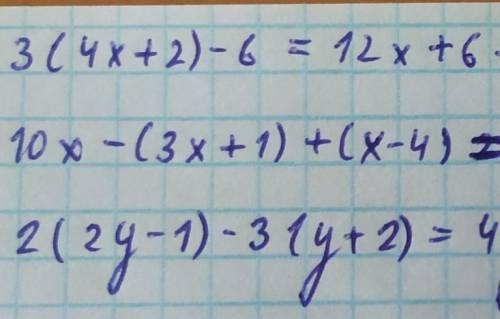 3(4x+2)-6 = 12x+6
10x-(3x+1)+(x-4) =
2(2y-1)-3(y+2) = 4